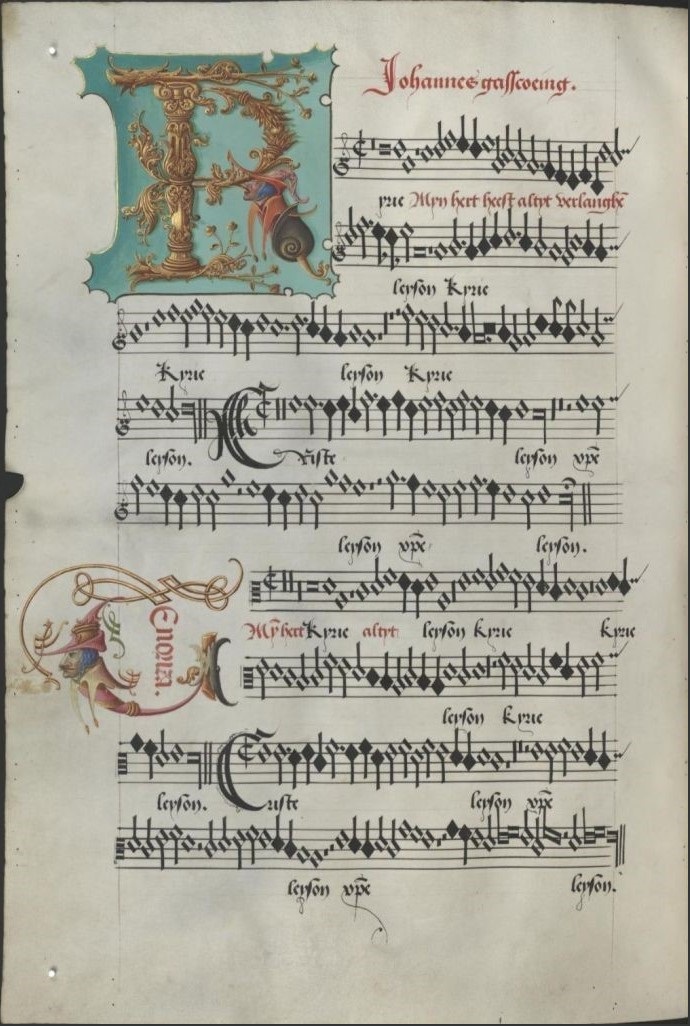 Johannes gasscoeing.
K
yrie Myn hert heeft altyt verlanghẽ
leyson Kyrie
Kyrie leyson Kyrie
leyson. Criste leyson xp̃e
leyson xp̃e leyson.
Tenor
Mỹ hert Kyrie altyt leyson kyrie kyrie
leyson kyrie
leyson. Criste leyson xp̃e
leyson xp̃e leyson.